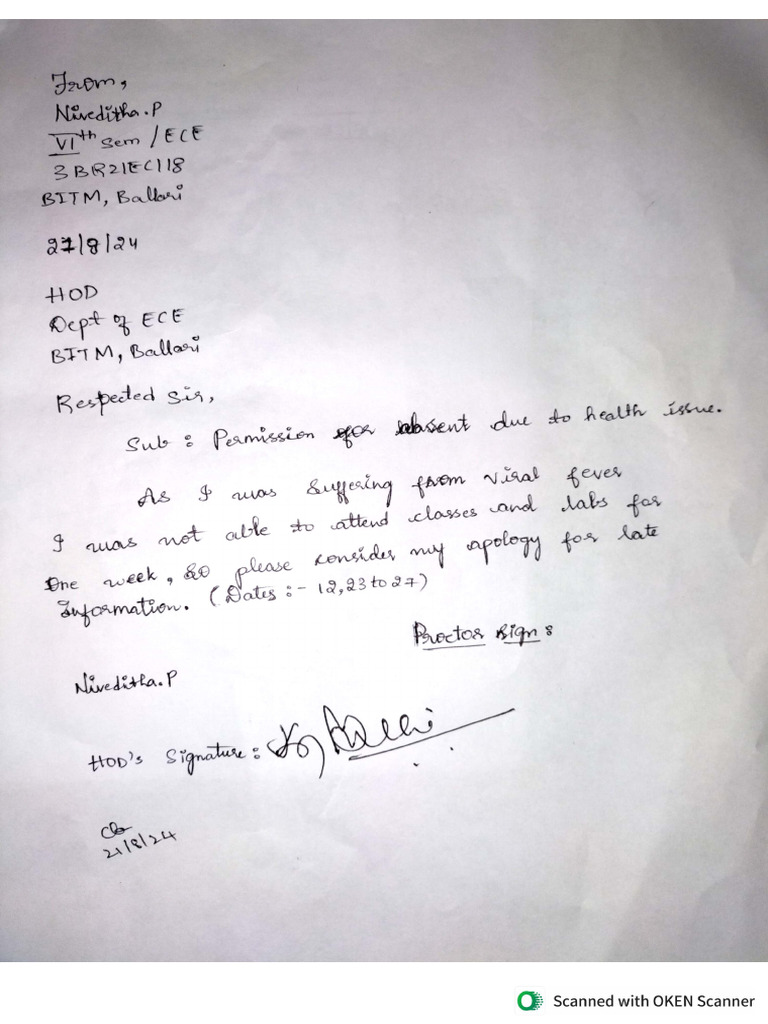 From,
Niveditha.P
VIth Sem / ECE
3BR21EC118
BITM, Ballari
27/8/24
HOD
Dept of ECE
BITM, Ballari
Respected Sir,
Sub : Permission for absent due to health issue.
As I was Suffering from viral fever
I was not able to attend classes and labs for
One week, So please consider my apology for late
Information. (Dates :- 12, 23 to 27)
Proctor Sign :
Niveditha.P
HOD's Signature :
21/8/24
Scanned with OKEN Scanner